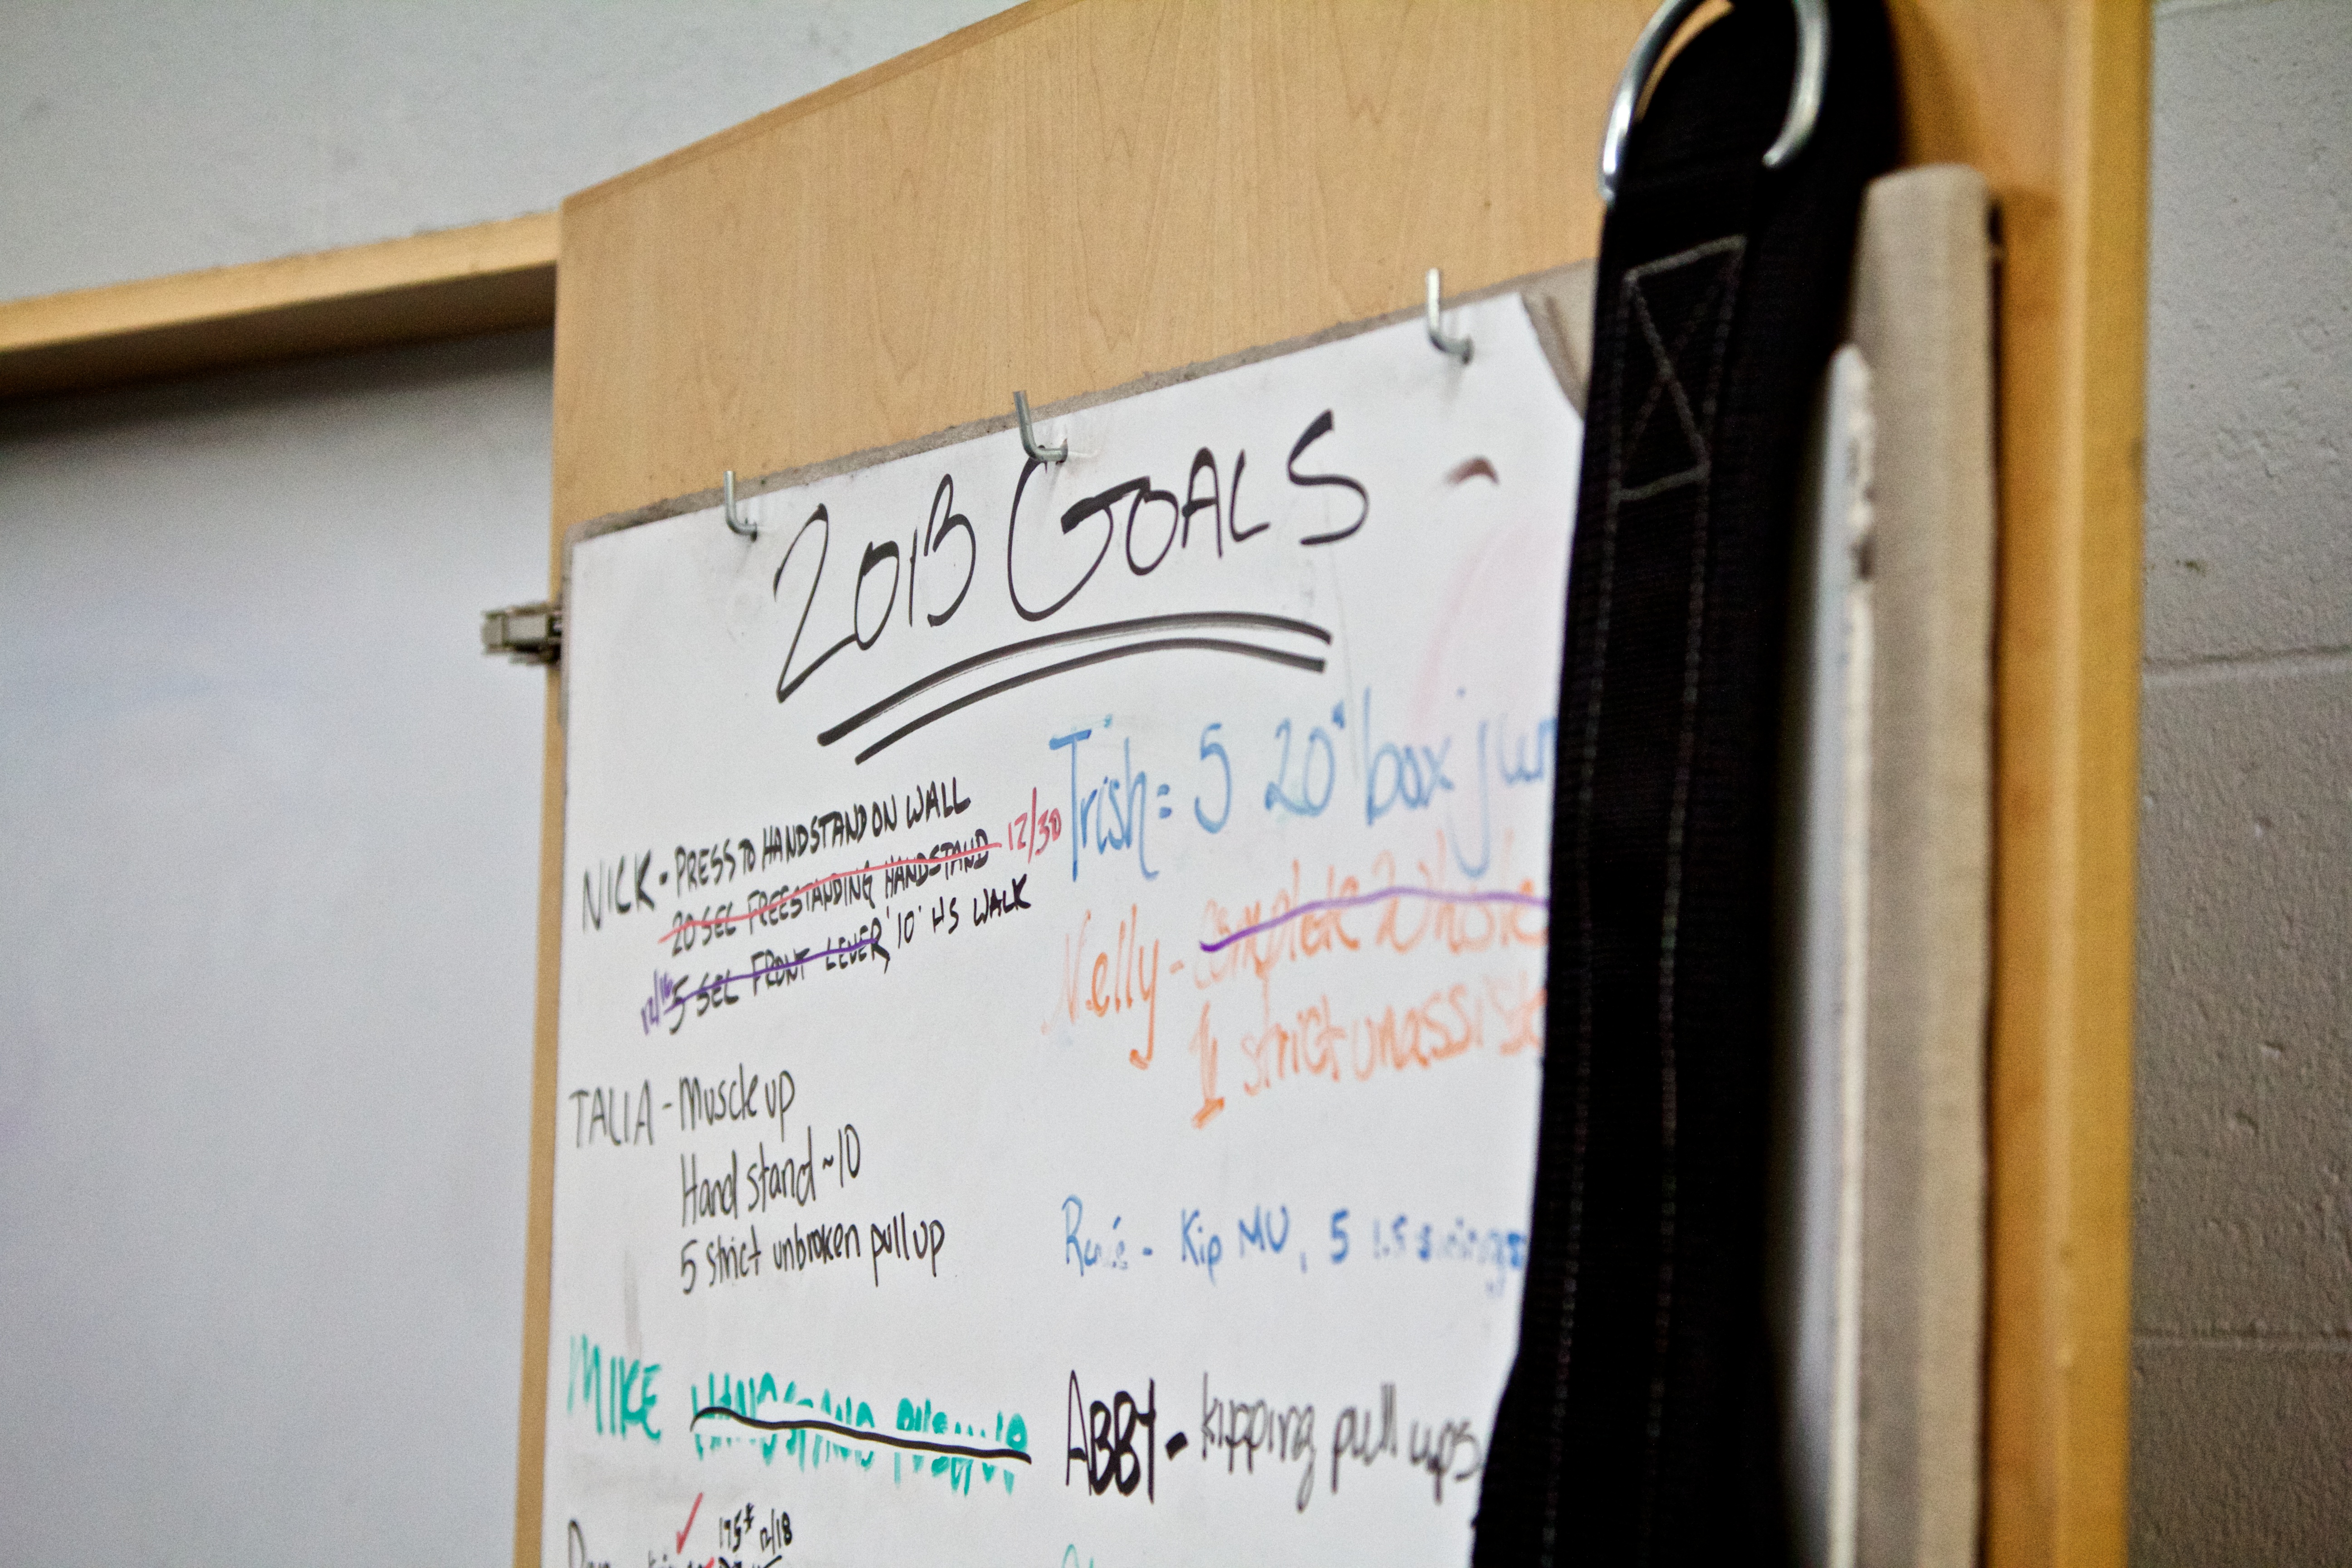 2013 GOALS -
NICK - PRESS TO HANDSTAND ON WALL
20 SEC FREESTANDING HANDSTAND 12/30
5 SEC FRONT LEVER, 10' HS WALK
TALIA - Muscle up
Hand stand ~10
5 strict unbroken pull up
MIKE HANDSTAND PUSHUP
175# 12/18
Trish = 5 20" box jum
Nelly - complete 2 whole
1 strict unassiste
Kip MU, 5 1.5 swings
ABBY - kipping pull ups